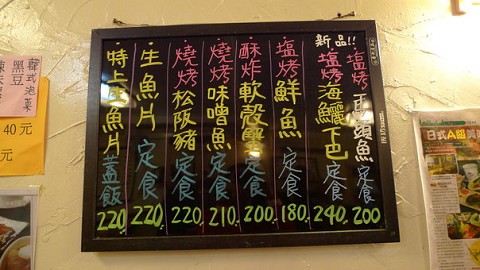 新品!!
塩烤馬頭魚定食 200
塩烤海鱺下巴定食 240.
塩烤鮮魚定食 180.
酥炸軟殼蟹定食 200.
燒烤味噌魚定食 210.
燒烤松阪豬定食 220.
生魚片定食 220.
特上生魚片蓋飯 220.
韓式泡菜
黑豆
40元
元
日式A組